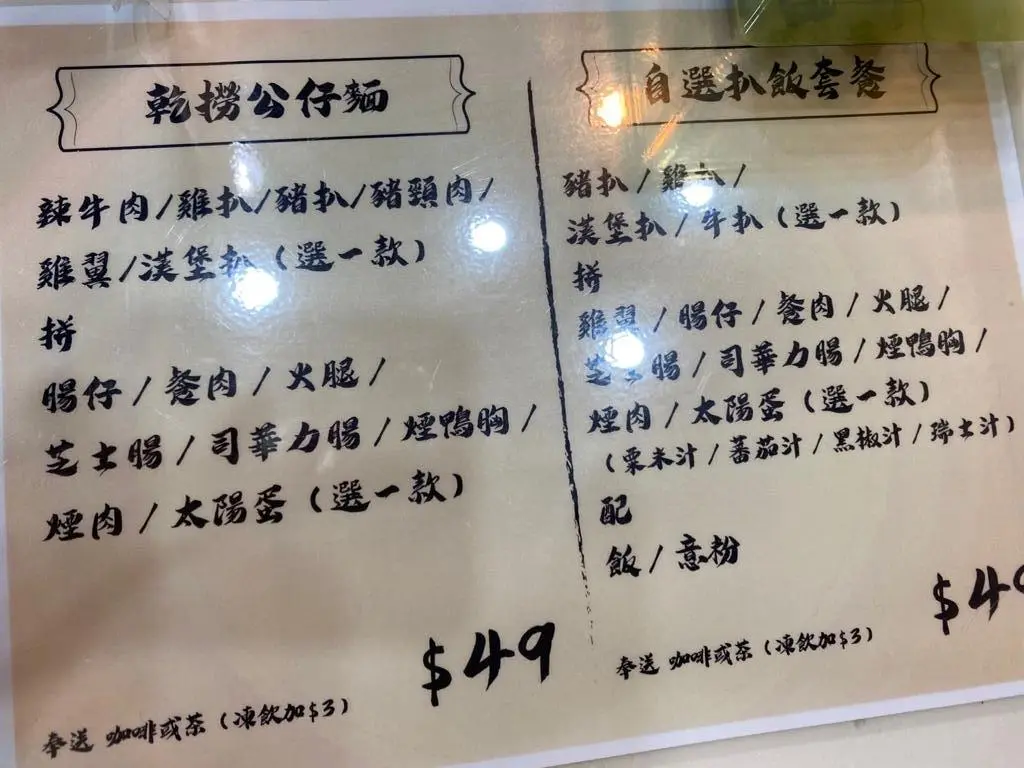 乾撈公仔麵
辣牛肉/雞扒/豬扒/豬頸肉/
雞翼/漢堡扒（選一款）
拼
腸仔/餐肉/火腿/
芝士腸/司華力腸/煙鴨胸/
煙肉/太陽蛋（選一款）
$49
奉送 咖啡或茶（凍飲加$3）
自選扒飯套餐
豬扒/雞扒/
漢堡扒/牛扒（選一款）
拼
雞翼/腸仔/餐肉/火腿/
芝士腸/司華力腸/煙鴨胸/
煙肉/太陽蛋（選一款）
（粟米汁/蕃茄汁/黑椒汁/瑞士汁）
配
飯/意粉
$4
奉送 咖啡或茶（凍飲加$3）